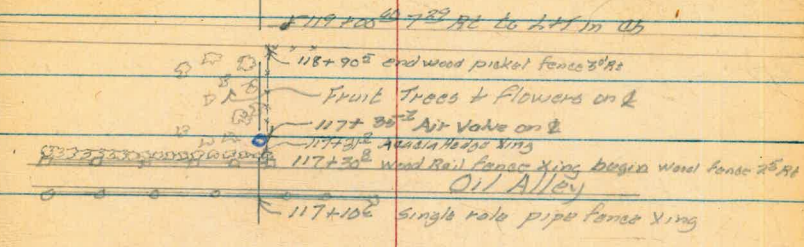 119+00 7 Rt to
118+90⁵ end wood picket fence 3' Rt
Fruit Trees & Flowers on ℄
117+35 Air Valve on ℄
117+31² Acacia Hedge Xing
117+30⁸ wood Rail fence Xing begin wood fence 2⁵ Rt
Oil Alley
117+10 single pipe fence Xing